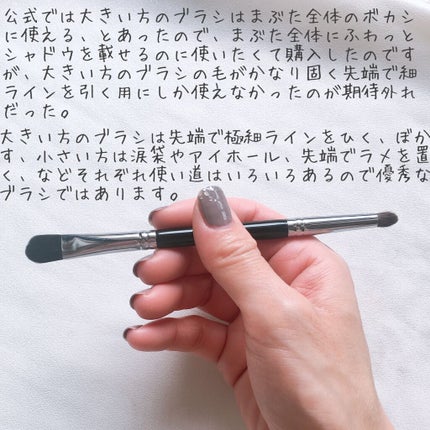 公式では大きい方のブラシはまぶた全体のボカシ
に使える、とあったので、まぶた全体にふわっと
シャドウを載せるのに使いたくて購入したのです
が、大きい方のブラシの毛がかなり固く先端で細
ラインを引く用にしか使えなかったのが期待外れ
だった。
大きい方のブラシは先端で極細ラインをひく、ぼか
す、小さい方は涙袋やアイホール、先端でラメを置
く、などそれぞれ使い道はいろいろあるので優秀な
ブラシではあります。